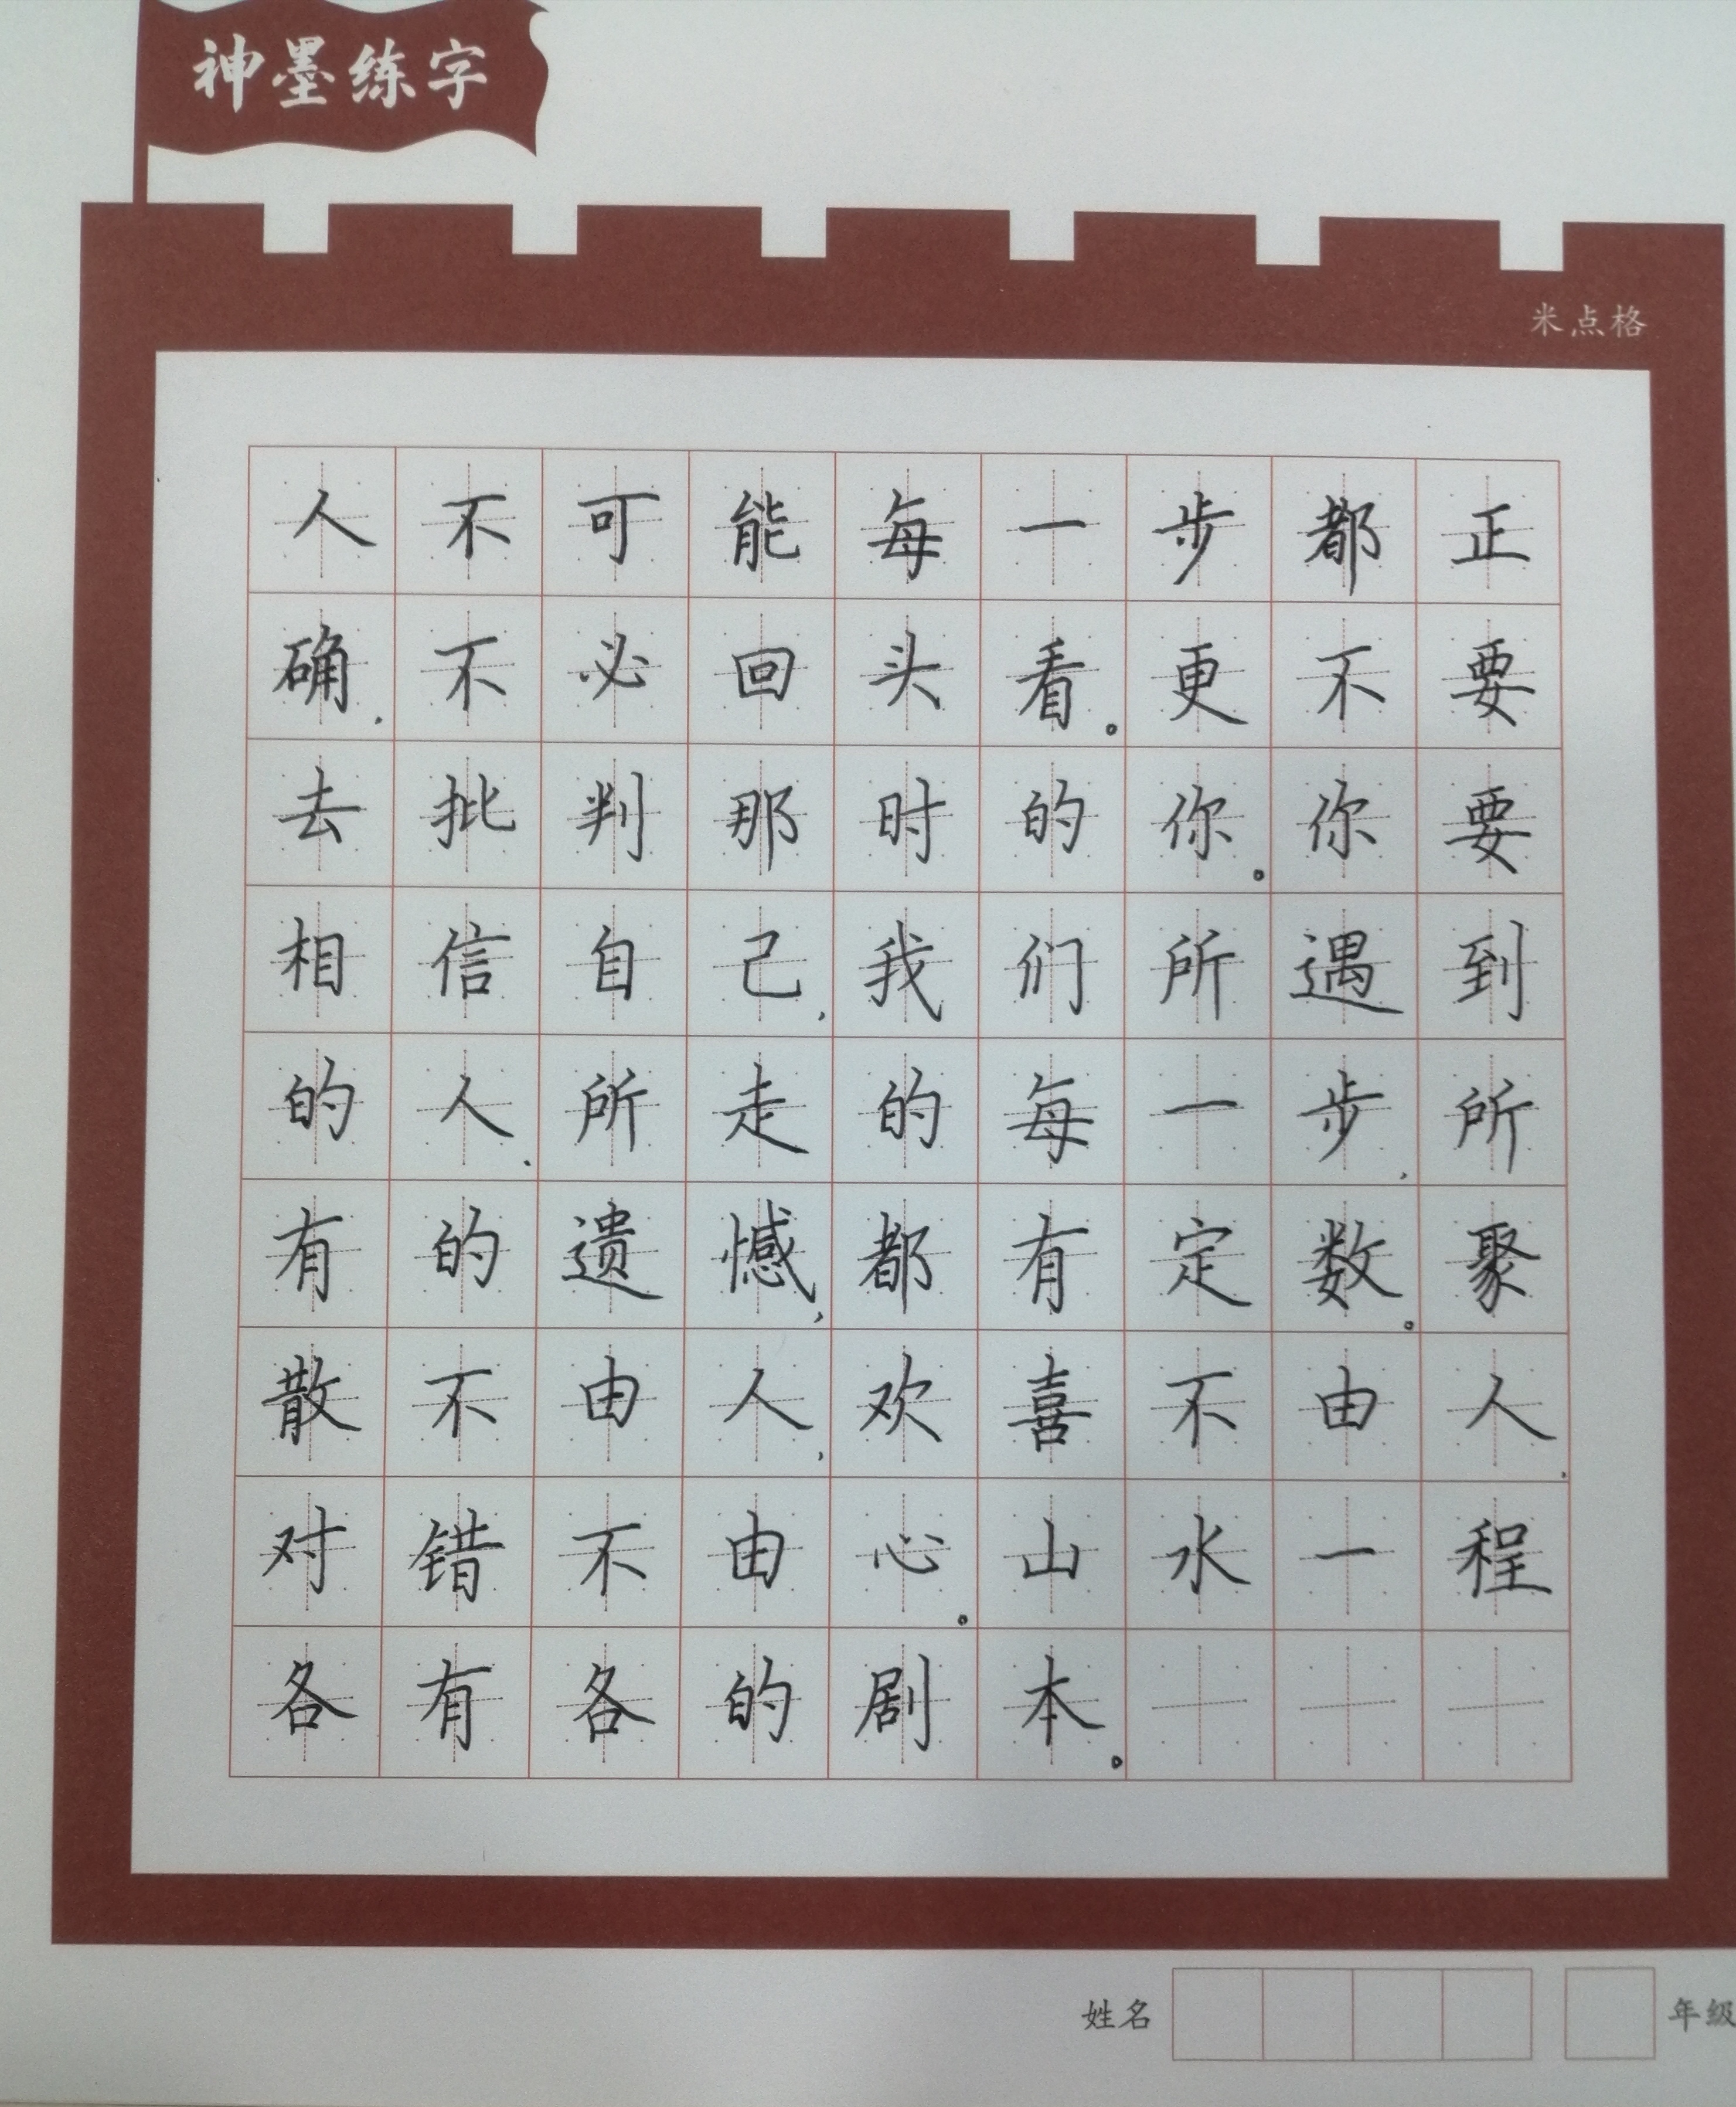 神墨练字
米点格
人不可能每一步都正
确,不必回头看。更不要
去批判那时的你。你要
相信自己,我们所遇到
的人,所走的每一步,所
有的遗憾,都有定数。聚
散不由人,欢喜不由人,
对错不由心。山水一程
各有各的剧本。
姓名 年级